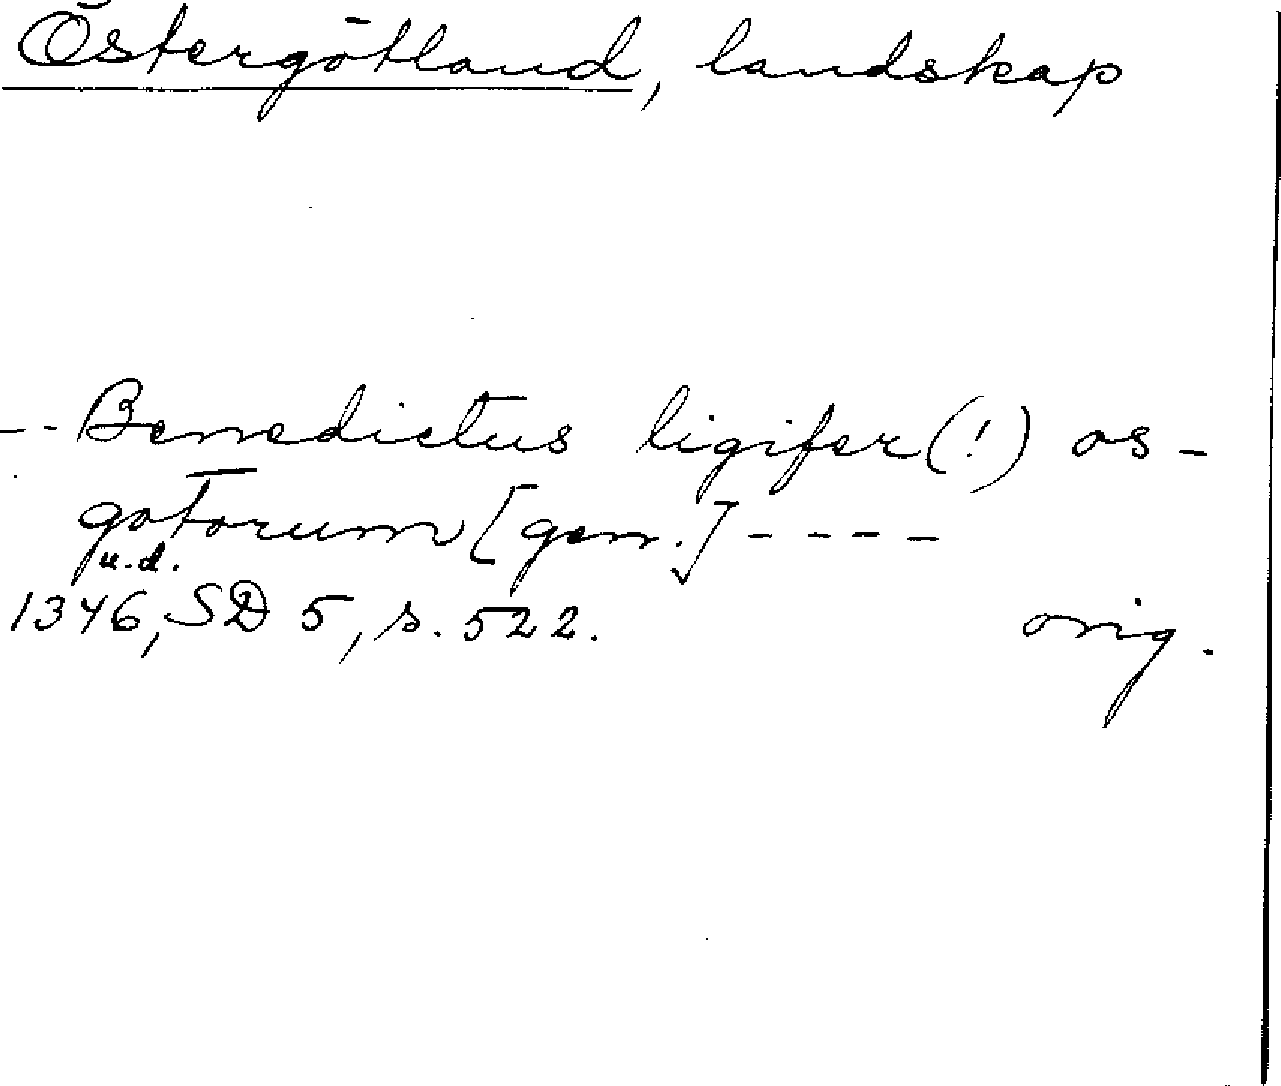 Östergötland, landskap
-- Benedictus ligifer(!) os-
gotorum [gen.] ----
u.d.
1346, SD 5, s. 522. orig.